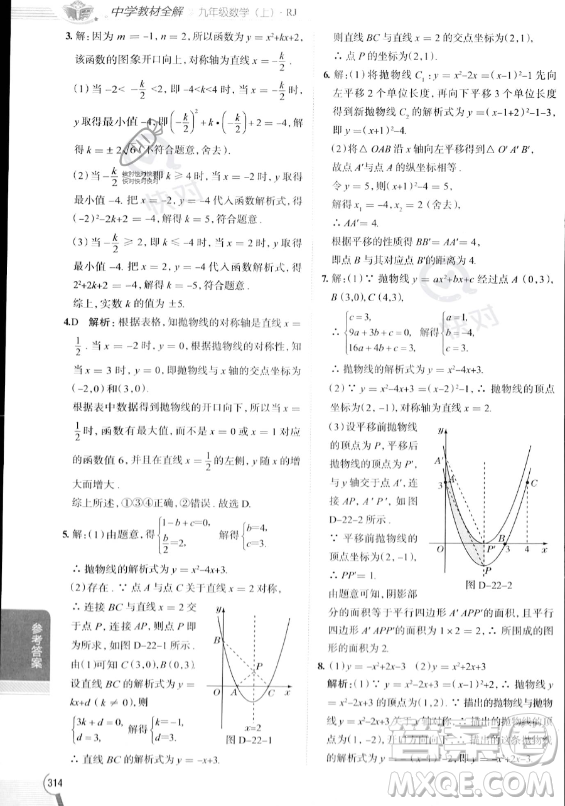 中学教材全解 九年级数学（上）·RJ
3. 解：因为 m=-1, n=2, 所以函数关系式为 y=x²+kx+2.
该函数的图象开口向上, 对称轴为直线 x=-k/2.
(1) 当 -2<-k/2<2 时, 即 -4<k<4 时, 当 x=-k/2 时,
y 取得最小值 -4, 即 (-k/2)²+k·(-k/2)+2=-4, 解
得 k=±2√6(不符合题意, 舍去).
(2) 当 -k/2≤-2 时, 即 k≥4 时, 当 x=-2 时, y 取得
最小值 -4. 把 x=-2, y=-4 代入函数解析式, 得
(-2)²-2k+2=-4, 解得 k=5. 符合题意.
(3) 当 -k/2≥2 时, 即 k≤-4 时, 当 x=2 时, y 取得
最小值 -4. 把 x=2, y=-4 代入函数解析式, 得
2²+2k+2=-4, 解得 k=-5. 符合题意.
综上, 实数 k 的值为 ±5.
4. D 解析：根据表格, 知抛物线的对称轴是直线 x=
1/2. 当 x=-2 时, y=0, 根据抛物线的对称性, 知当
x=3 时, y=0, 即抛物线与 x 轴的交点坐标为
(-2,0)和(3,0).
根据表中数据得到抛物线的开口向下, 当 x=1/2
时, 函数有最大值, 而不是 x=0 或 x=1 对应
的函数值 6, 并且在直线 x=1/2 的左侧, y 随 x 的增
大而增大.
综上所述, ①③④正确, ②错误. 故选 D.
5. 解：(1) 由题意, 得 {1-b+c=0, c=3, 解得 {b=4, c=3,
∴ y=x²-4x+3.
(2) 存在. ∵ 点 A 与点 C 关于直线 x=2 对称,
∴ 连接 BC 与直线 x=2 交
于点 P, 则点 P 即
为所求, 如图 D-22-1.
由(1)可知 C(3,0), B(0,3).
设直线 BC 的解析式为 y=
kx+d(k≠0), 则
{3k+d=0, d=3, 解得 {k=-1, d=3.
∴ 直线 BC 的解析式为 y=-x+3,
y
x
O
A
B
C
P
x=2
图 D-22-1
则直线 BC 与直线 x=2 的交点坐标为(2,1).
∴ 点 P 的坐标为(2,1).
6. 解：(1) 将抛物线 C₁: y=x²-2x=(x-1)²-1 先向
左平移 2 个单位长度, 再向下平移 3 个单位长度
得到新抛物线 C₂ 的解析式为 y=(x-1+2)²-1-3,
即 y=(x+1)²-4.
(2) 将 △OAB 沿 x 轴向左平移得到 △O'A'B',
故点 A' 与点 A 的纵坐标相等.
令 y=5, 则(x+1)²-4=5.
解得 x₁=-4, x₂=2 (舍去),
∴ AA'=4.
根据平移的性质得 BB'=AA'=4,
即点 B 与其对应点 B' 的距离为 4.
7. 解：(1)∵ 抛物线 y=ax²+bx+c 经过点 A(0,3),
B(3,0), C(4,3),
∴ {c=3, 9a+3b+c=0, 16a+4b+c=3, 解得 {a=1, b=-4, c=3,
∴ 抛物线的解析式为 y=x²-4x+3.
(2)∵ y=x²-4x+3=(x-2)²-1, ∴ 抛物线的顶点
坐标为(2,-1), 对称轴为直线 x=2.
(3) 设平移前抛物线
的顶点为 P, 平移后
抛物线的顶点为 P',
与 y 轴交于点 A', 连
接 AA', PP', AP,
A'P', 如图
D-22-2 所示.
∵ 平移后抛物线的
顶点坐标为(2,0),
∴ PP'=1.
由题意可知, 阴影部
分的面积等于平行四边形 A'APP' 的面积, 且平行
四边形 A'APP' 的面积=1×2=2, ∴ 所围成的图
形的面积为 2.
y
A'
A
3
C
O
P'
3
4
x
B
P
图 D-22-2
8. (1)y=-x²+2x+3 (2)y=x²+2x+3
解析：(1)∵ 描出的抛物线与抛物线 y=
x²-2x+3 关于 x 轴对称, ∴ 描出的抛物线的顶
参考答案
314
快对